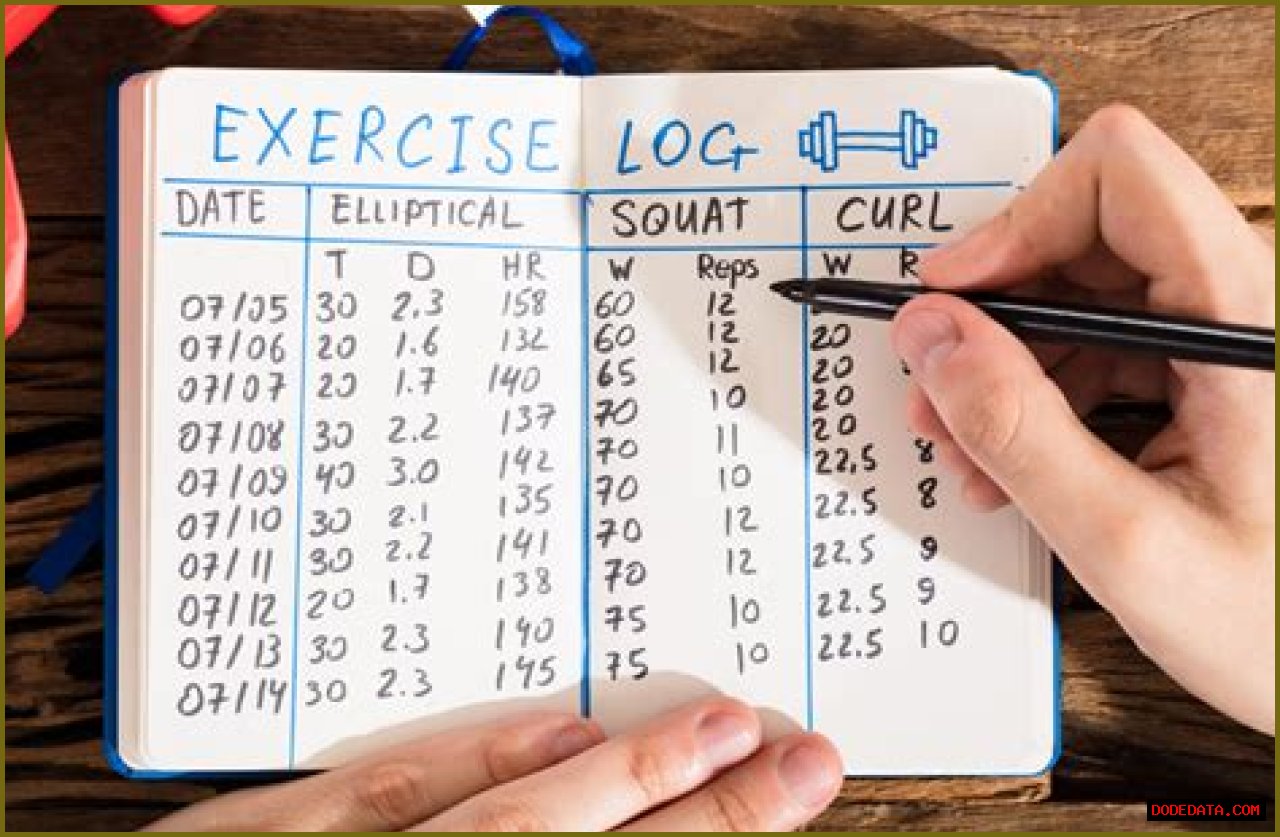 EXERCISE LOG
DATE ELLIPTICAL SQUAT CURL
T D HR W Reps W
07/05 30 2.3 158 60 12
07/06 20 1.6 132 60 12 20
07/07 20 1.7 140 65 12 20
07/08 30 2.2 137 70 10 20
07/09 40 3.0 142 70 11 20
07/10 30 2.1 135 70 10 22,5 8
07/11 30 2.2 141 70 12 22.5 8
07/12 20 1.7 138 70 12 22.5 9
07/13 30 2.3 140 75 10 22.5 9
07/14 30 2.3 145 75 10 22.5 10
DODEDATA.COM